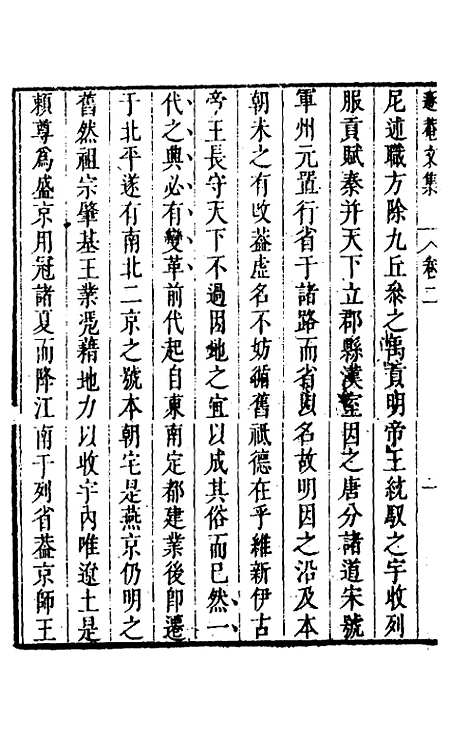 遯菴文集　卷二　一
尼述職方除九丘叅之禹貢明帝王統馭之宇收列
服貢賦秦并天下立郡縣漢室因之唐分諸道宋號
軍州元置行省于諸路而省因名故明因之沿及本
朝未之有改葢虛名不妨循舊祇德在乎維新伊古
帝王長守天下不過因地之宜以成其俗而已然一
代之典必有變革前代起自東南定都建業後卽遷
于北平遂有南北二京之號本朝宅是燕京仍明之
舊然祖宗肇基王業憑藉地力以收宇內唯遼土是
賴尊爲盛京用冠諸夏而降江南于列省葢京師王